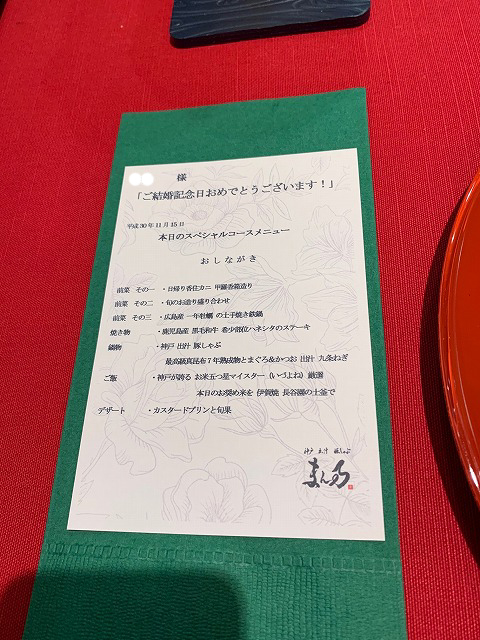 様
「ご結婚記念日おめでとうございます！」
平成30年11月15日
本日のスペシャルコースメニュー
おしながき
前菜 その一 ・日帰り香住カニ 甲羅香箱造り
前菜 その二 ・旬のお造り盛り合わせ
前菜 その三 ・広島産 一年牡蠣 の土手焼き鉄鍋
焼き物 ・鹿児島産 黒毛和牛 希少部位ハネシタのステーキ
鍋物 ・神戸 出汁 豚しゃぶ
最高級真昆布７年熟成物とまぐろ＆かつお 出汁 九条ねぎ
ご飯 ・神戸が誇る お米五つ星マイスター（いづよね）厳選
本日のお奨め米を 伊賀焼 長谷園の土釜で
デザート ・カスタードプリンと旬果
神戸 出汁 豚しゃぶ